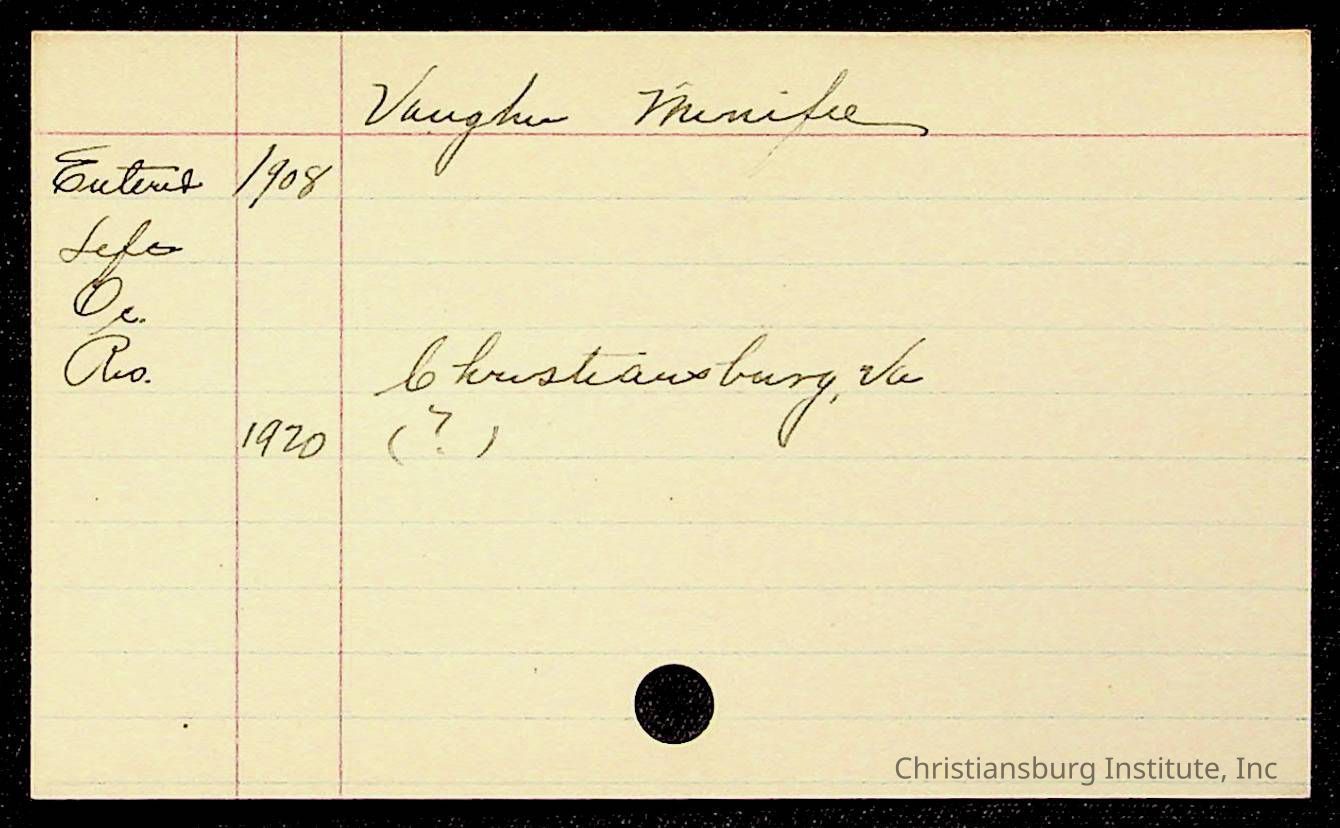 Vaughn Menifee
Entered 1908
Left
Oc.
Res. Christiansburg, Va
1920 (?)
Christiansburg Institute, Inc